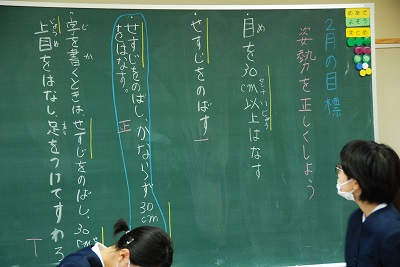 2月の目標
姿勢を正しくしよう
目を30cm以上はなす
せすじをのばす
せすじをのばし、かならず30cm
をはなす。
正
字を書くときは、せすじをのばし、
上目をはなし足をつけてすわろ
T